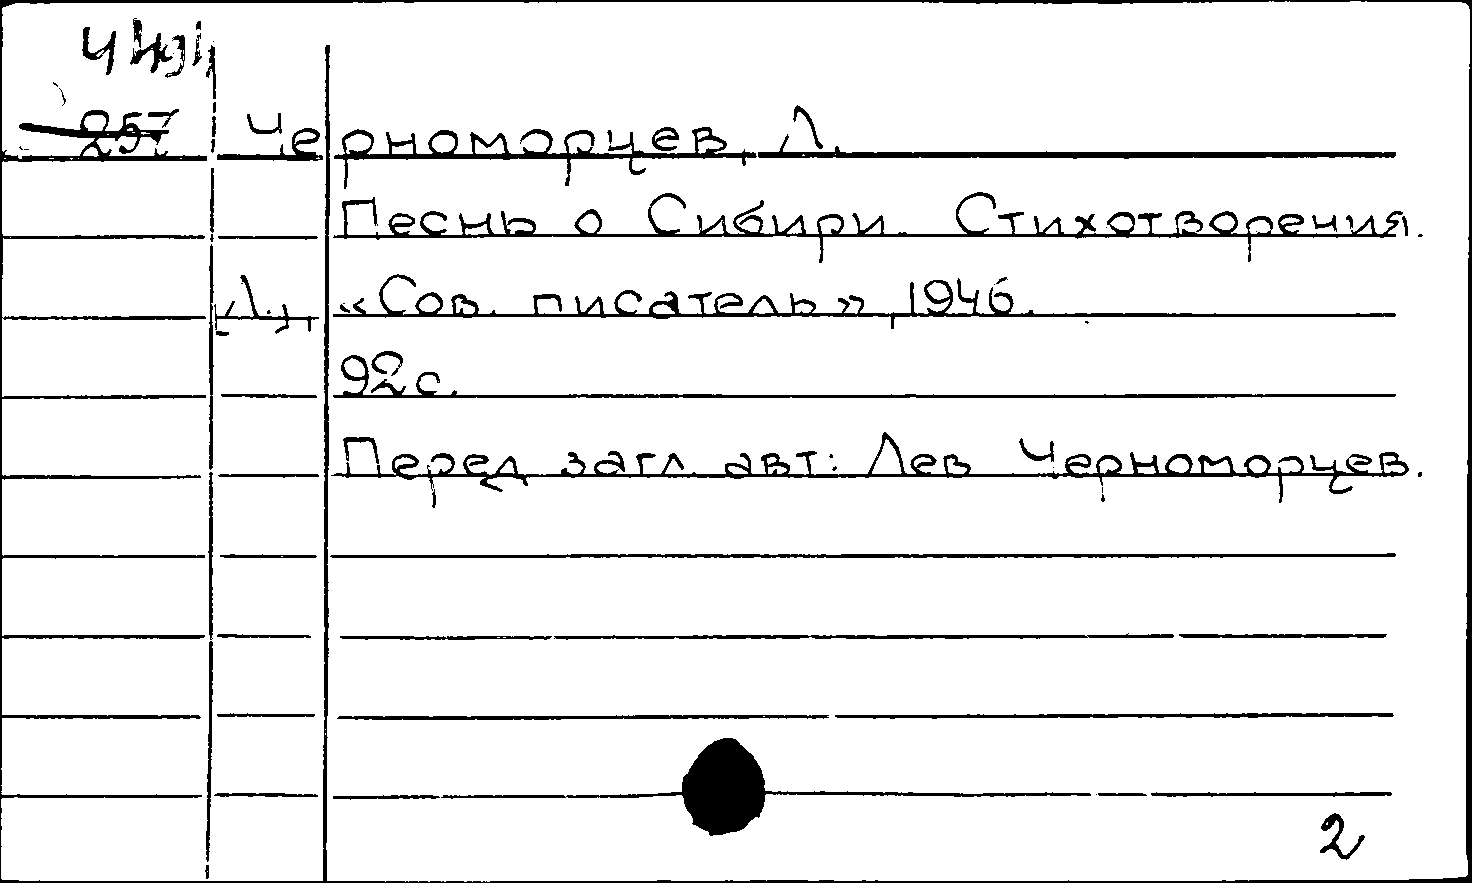 257 Черноморцев, Л.
Песнь о Сибири. Стихотворения.
[Л.], «Сов. писатель», 1946.
92 с.
Перед загл. авт: Лев Черноморцев.
2